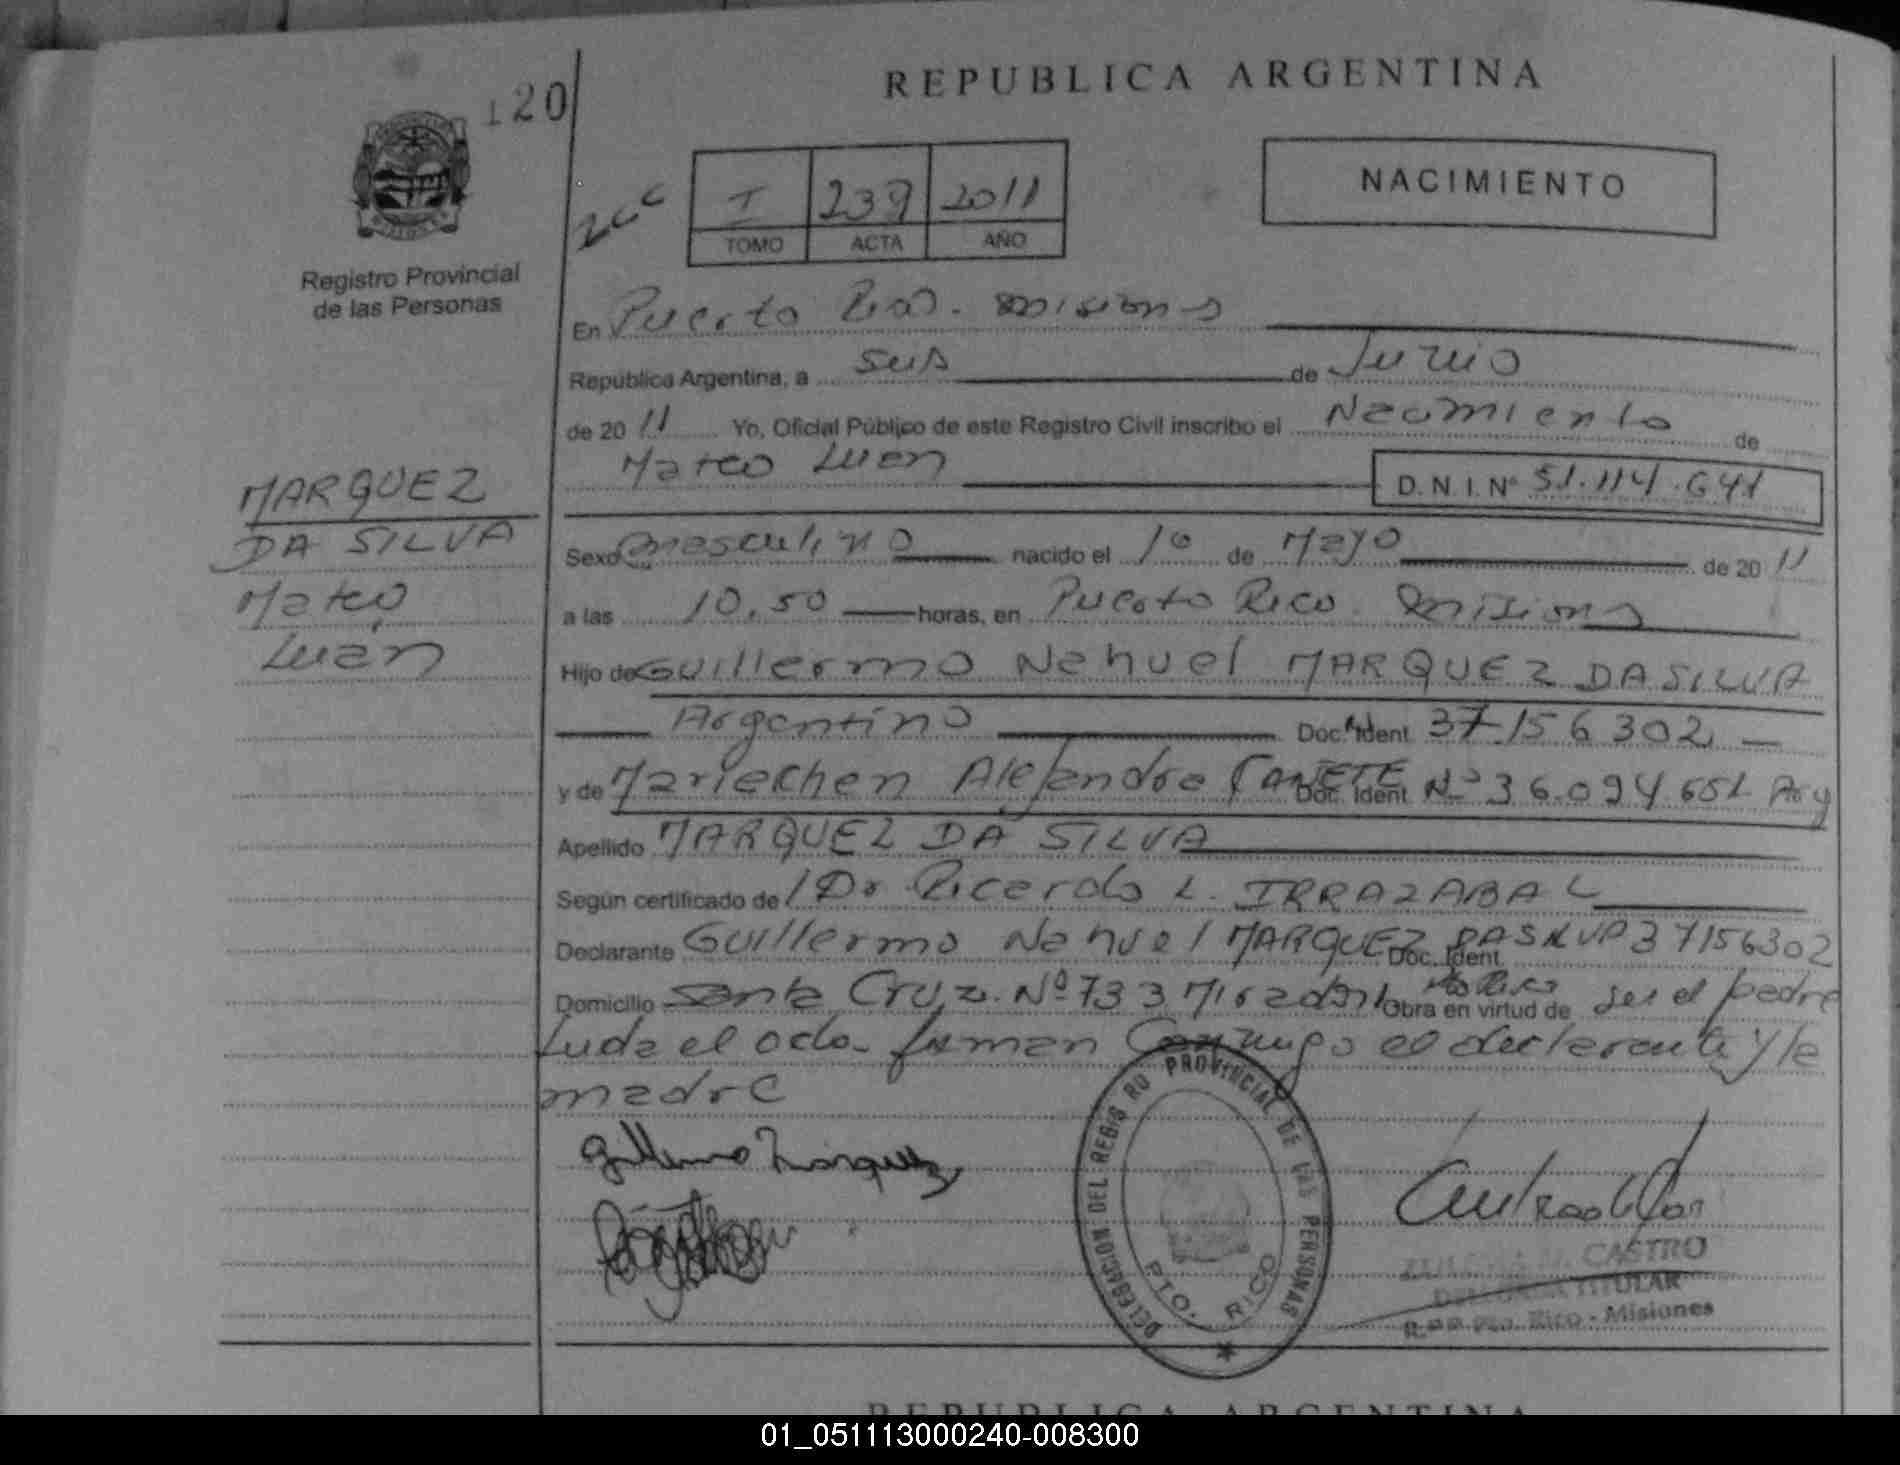 120
REPUBLICA ARGENTINA
I 239 2011
TOMO ACTA AÑO
NACIMIENTO
Registro Provincial
de las Personas
En Puerto Rico. Misiones
República Argentina, a seis de Junio
de 2011 Yo, Oficial Público de este Registro Civil inscribo el Nacimiento de
Mateo Luan D.N.I. Nº 51.114.641
MARQUEZ
DA SILVA
Mateo
Luán
Sexo masculino nacido el 1º de Mayo de 2011
a las 10,50 horas, en Puerto Rico. Misiones
Hijo de Guillermo Nahuel MARQUEZ DA SILVA
Argentino Doc. Ident. 37.156.302
y de Mariechen Alejandra CAÑETE Doc. Ident. Nº 36.094.651 Arg
Apellido MARQUEZ DA SILVA
Según certificado de Dr. Ricardo L. IRRAZABAL
Declarante Guillermo Nahuel MARQUEZ DA SILVA Doc. Ident. 37156302
Domicilio Santa Cruz. Nº 733 Pto Rico Obra en virtud de ser el padre
Leida el acta firman Conmigo el declarante y la
madre
Guillermo Marquez
DELEGACION DEL REGISTRO PROVINCIAL DE LAS PERSONAS
PTO. RICO
CASTRO
DELEGADA TITULAR
R.P.P. Pto. Rico - Misiones
REPUBLICA ARGENTINA
01_051113000240-008300